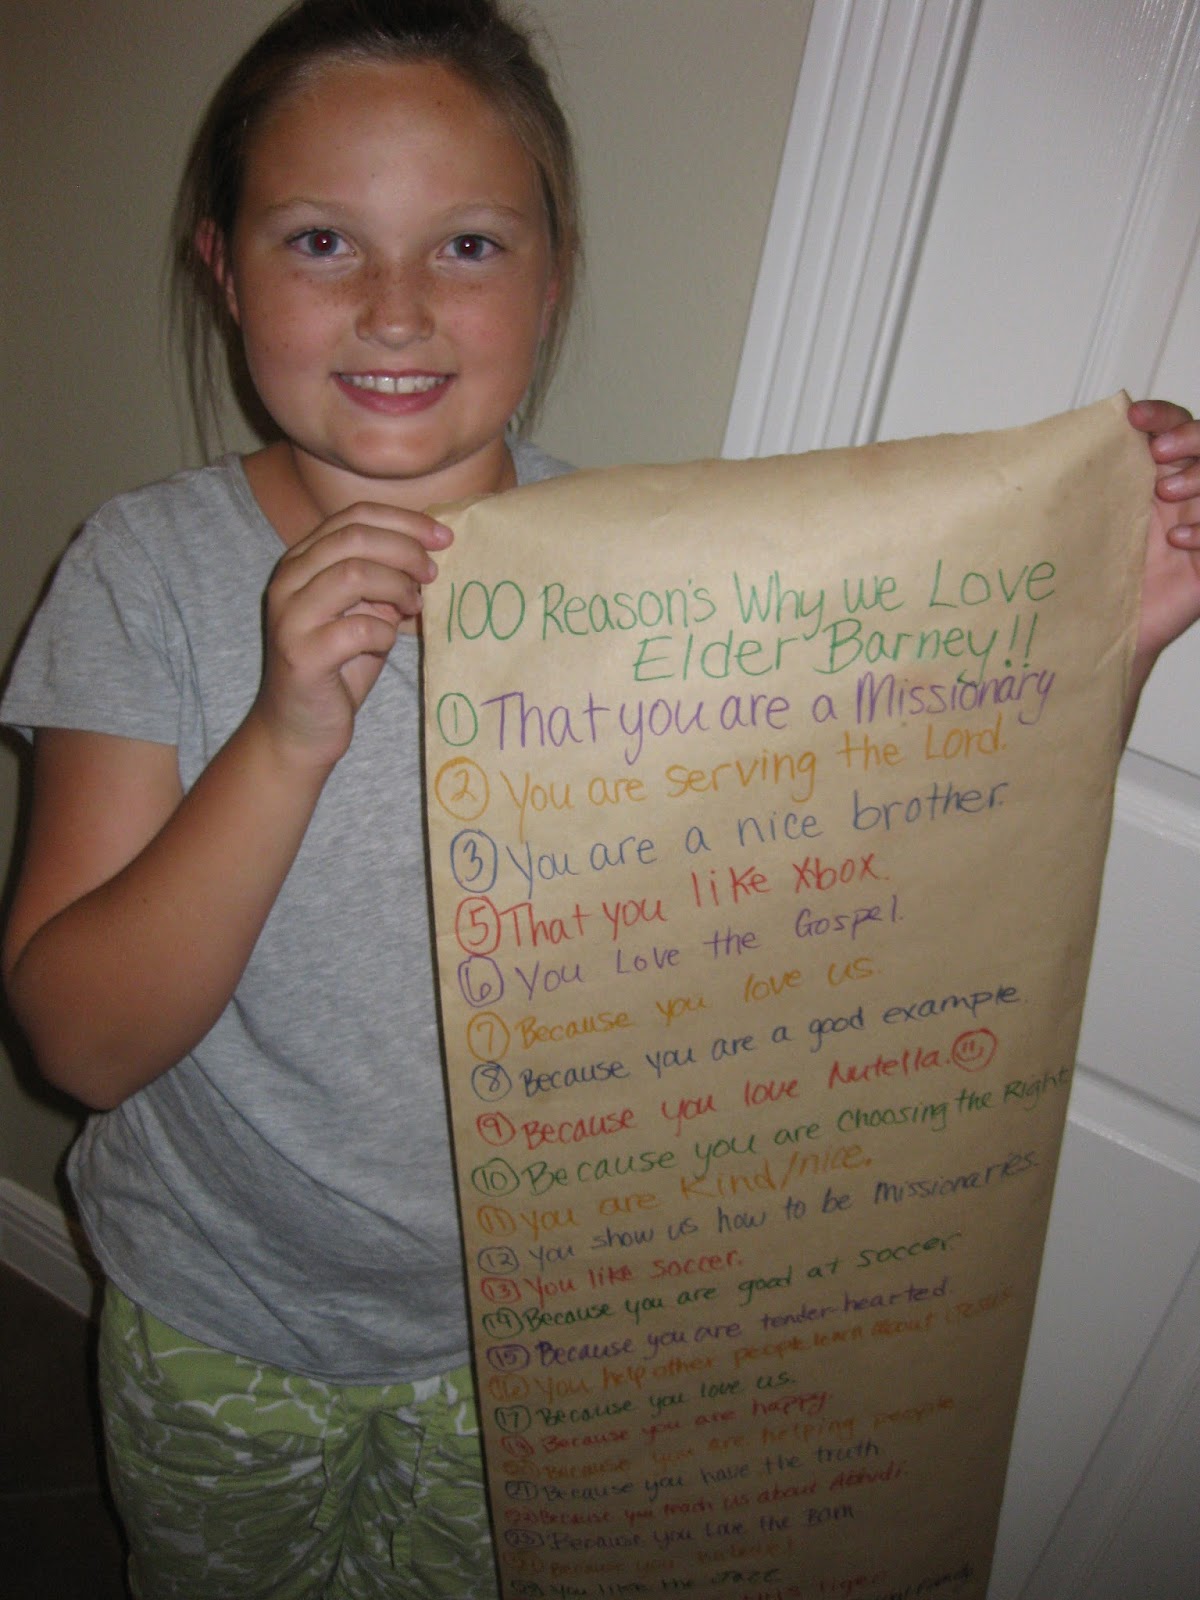 100 Reason's Why we Love
Elder Barney!!
① That you are a Missionary
② You are serving the Lord.
③ You are a nice brother.
⑤ That you like Xbox.
⑥ You Love the Gospel.
⑦ Because you love us.
⑧ Because you are a good example.
⑨ Because you love Nutella. ⑪
⑩ Because you are Choosing the Right
⑪ You are Kind/nice.
⑫ You show us how to be Missionaries.
⑬ You like Soccer.
⑭ Because you are good at soccer.
⑮ Because you are tender-hearted.
⑯ You help other people learn about Jesus
⑰ Because you love us.
⑲ Because you are happy.
Because you are helping people
㉑ Because you have the truth.
㉒ Because you teach us about
㉓ Because you Love the BOM
Because you
You like the Jazz